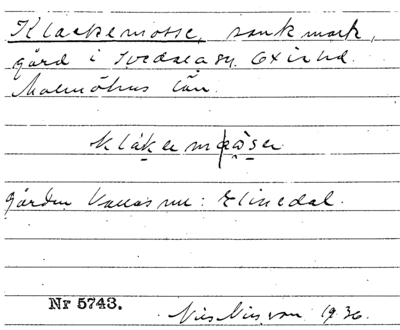 Klackemosse, sankmark,
gård i Svedala sn. Oxie hd.
Malmöhus län.
klákermåser
gården kallas nu: Elinedal.
Nr 5743.
Nils Nilsson 1936.